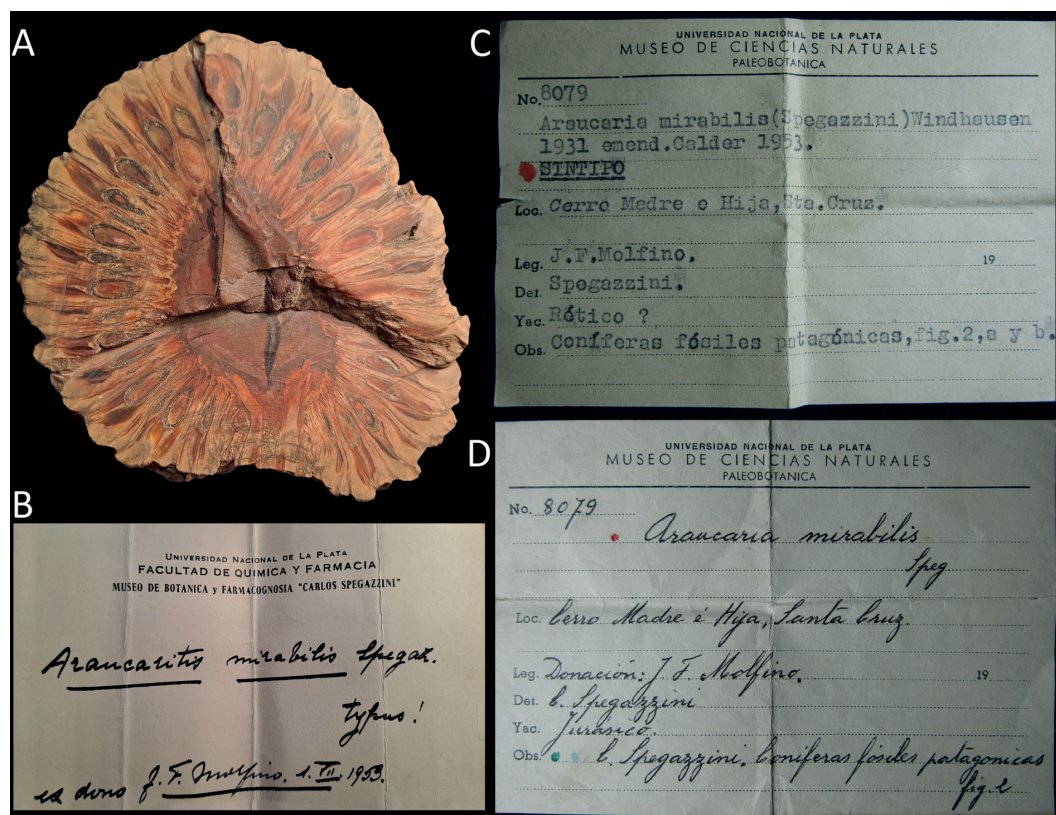 A
B
UNIVERSIDAD NACIONAL DE LA PLATA
FACULTAD DE QUIMICA Y FARMACIA
MUSEO DE BOTANICA y FARMACOGNOSIA "CARLOS SPEGAZZINI"
Araucaritis mirabilis Spegaz.
typus!
ex dono J. F. Molfino. 1. VII. 1953.
C
UNIVERSIDAD NACIONAL DE LA PLATA
MUSEO DE CIENCIAS NATURALES
PALEOBOTANICA
No. 8079
Araucaria mirabilis(Spegazzini)Windhausen
1931 emend.Calder 1953.
SINTIPO
Loc. Cerro Madre e Hija,Sta.Cruz.
Leg. J.F.Molfino. 19
Det. Spegazzini.
Yac. Rético ?
Obs. Coníferas fósiles patagónicas,fig.2,a y b.
D
UNIVERSIDAD NACIONAL DE LA PLATA
MUSEO DE CIENCIAS NATURALES
PALEOBOTANICA
No. 8079
Araucaria mirabilis
Speg.
Loc. Cerro Madre é Hija, Santa Cruz.
Leg. Donación: J. F. Molfino. 19
Det. C. Spegazzini
Yac. Jurásico.
Obs. C. Spegazzini. Coníferas fósiles patagonicas
fig. 2